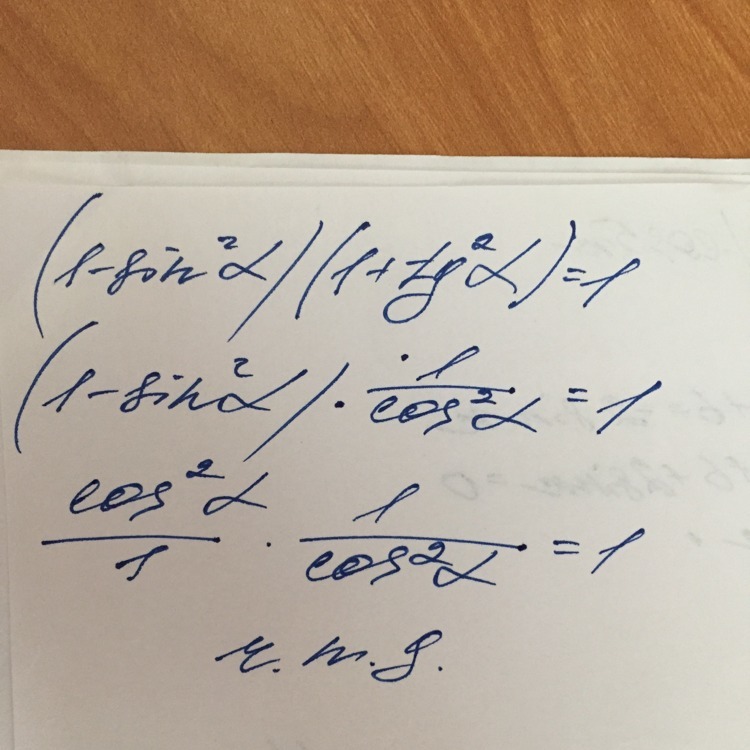 (1-sin²α)(1+tg²α)=1
(1-sin²α)·1/cos²α=1
cos²α/1·1/cos²α=1
ч.т.д.